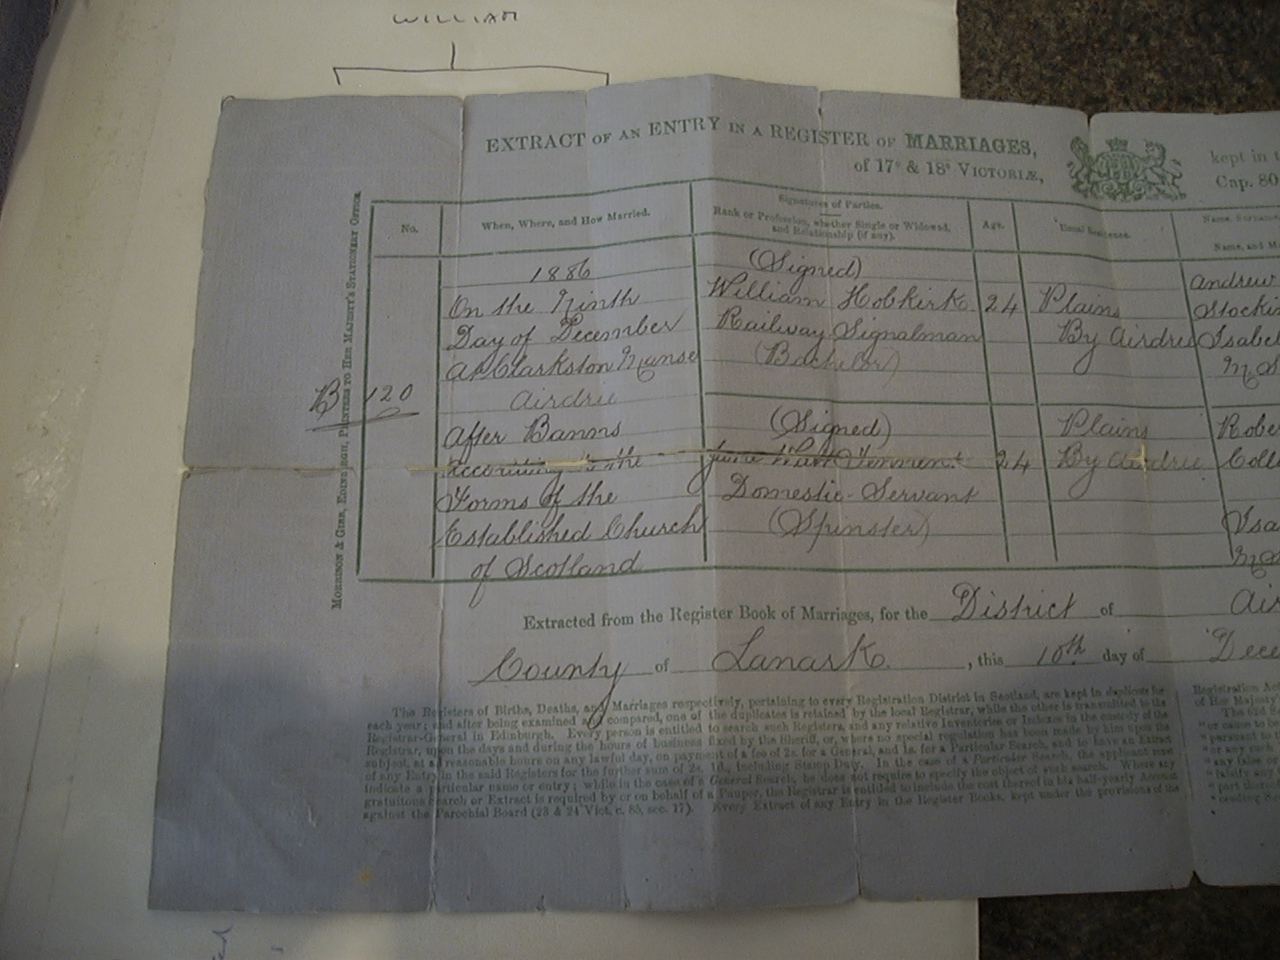 WILLIAM
EXTRACT OF AN ENTRY IN A REGISTER OF MARRIAGES,
kept in t
of 17° & 18° VICTORIÆ,
Cap. 80
MORRISON & GIBB, EDINBURGH, PRINTERS TO HER MAJESTY'S STATIONERY OFFICE.
No.
When, Where, and How Married.
Signatures of Parties.
Rank or Profession, whether Single or Widowed, and Relationship (if any).
Age.
Usual Residence.
Name, Surname
Name, and M
B 120
1886
On the Ninth
Day of December
At Clarkston Manse
Airdrie
After Banns
According to the
Forms of the
Established Church
of Scotland
(Signed)
William Hobkirk
Railway Signalman
(Bachelor)
24
Plains
By Airdrie
Andrew
Isabel
(Signed)
Tennent
Domestic Servant
(Spinster)
24
Plains
By Airdrie
Robe
Colli
Isa
Extracted from the Register Book of Marriages, for the District of Air
County of Lanark, this 10th day of Dece
The Registers of Births, Deaths, and Marriages respectively, pertaining to every Registration District in Scotland, are kept in duplicate for
each year; and after being examined and compared, one of the duplicates is retained by the local Registrar, while the other is transmitted to the
Registrar-General in Edinburgh. Every person is entitled to search such Registers, and any relative Inventories or Indexes in the custody of the
Registrar, upon the days and during the hours of business fixed by the Sheriff, or, where no special regulation has been made by him upon the
subject, at a reasonable hours on any lawful day, on payment of a fee of 2s. for a General, and 1s. for a Particular Search, and to have an Extract
of any Entry in the said Registers for the further sum of 2s. 1d., including Stamp Duty. In the case of a Particular Search, the applicant must
indicate a particular name or entry; while in the case of a General Search, he does not require to specify the object of such search. Where any
gratuitous Search or Extract is required by or on behalf of a Pauper, the Registrar is entitled to include the cost thereof in his half-yearly Account
against the Parochial Board (23 & 24 Vict. c. 85, sec. 17). Every Extract of any Entry in the Register Books, kept under the provisions of the
Registration Ac
of Her Majesty